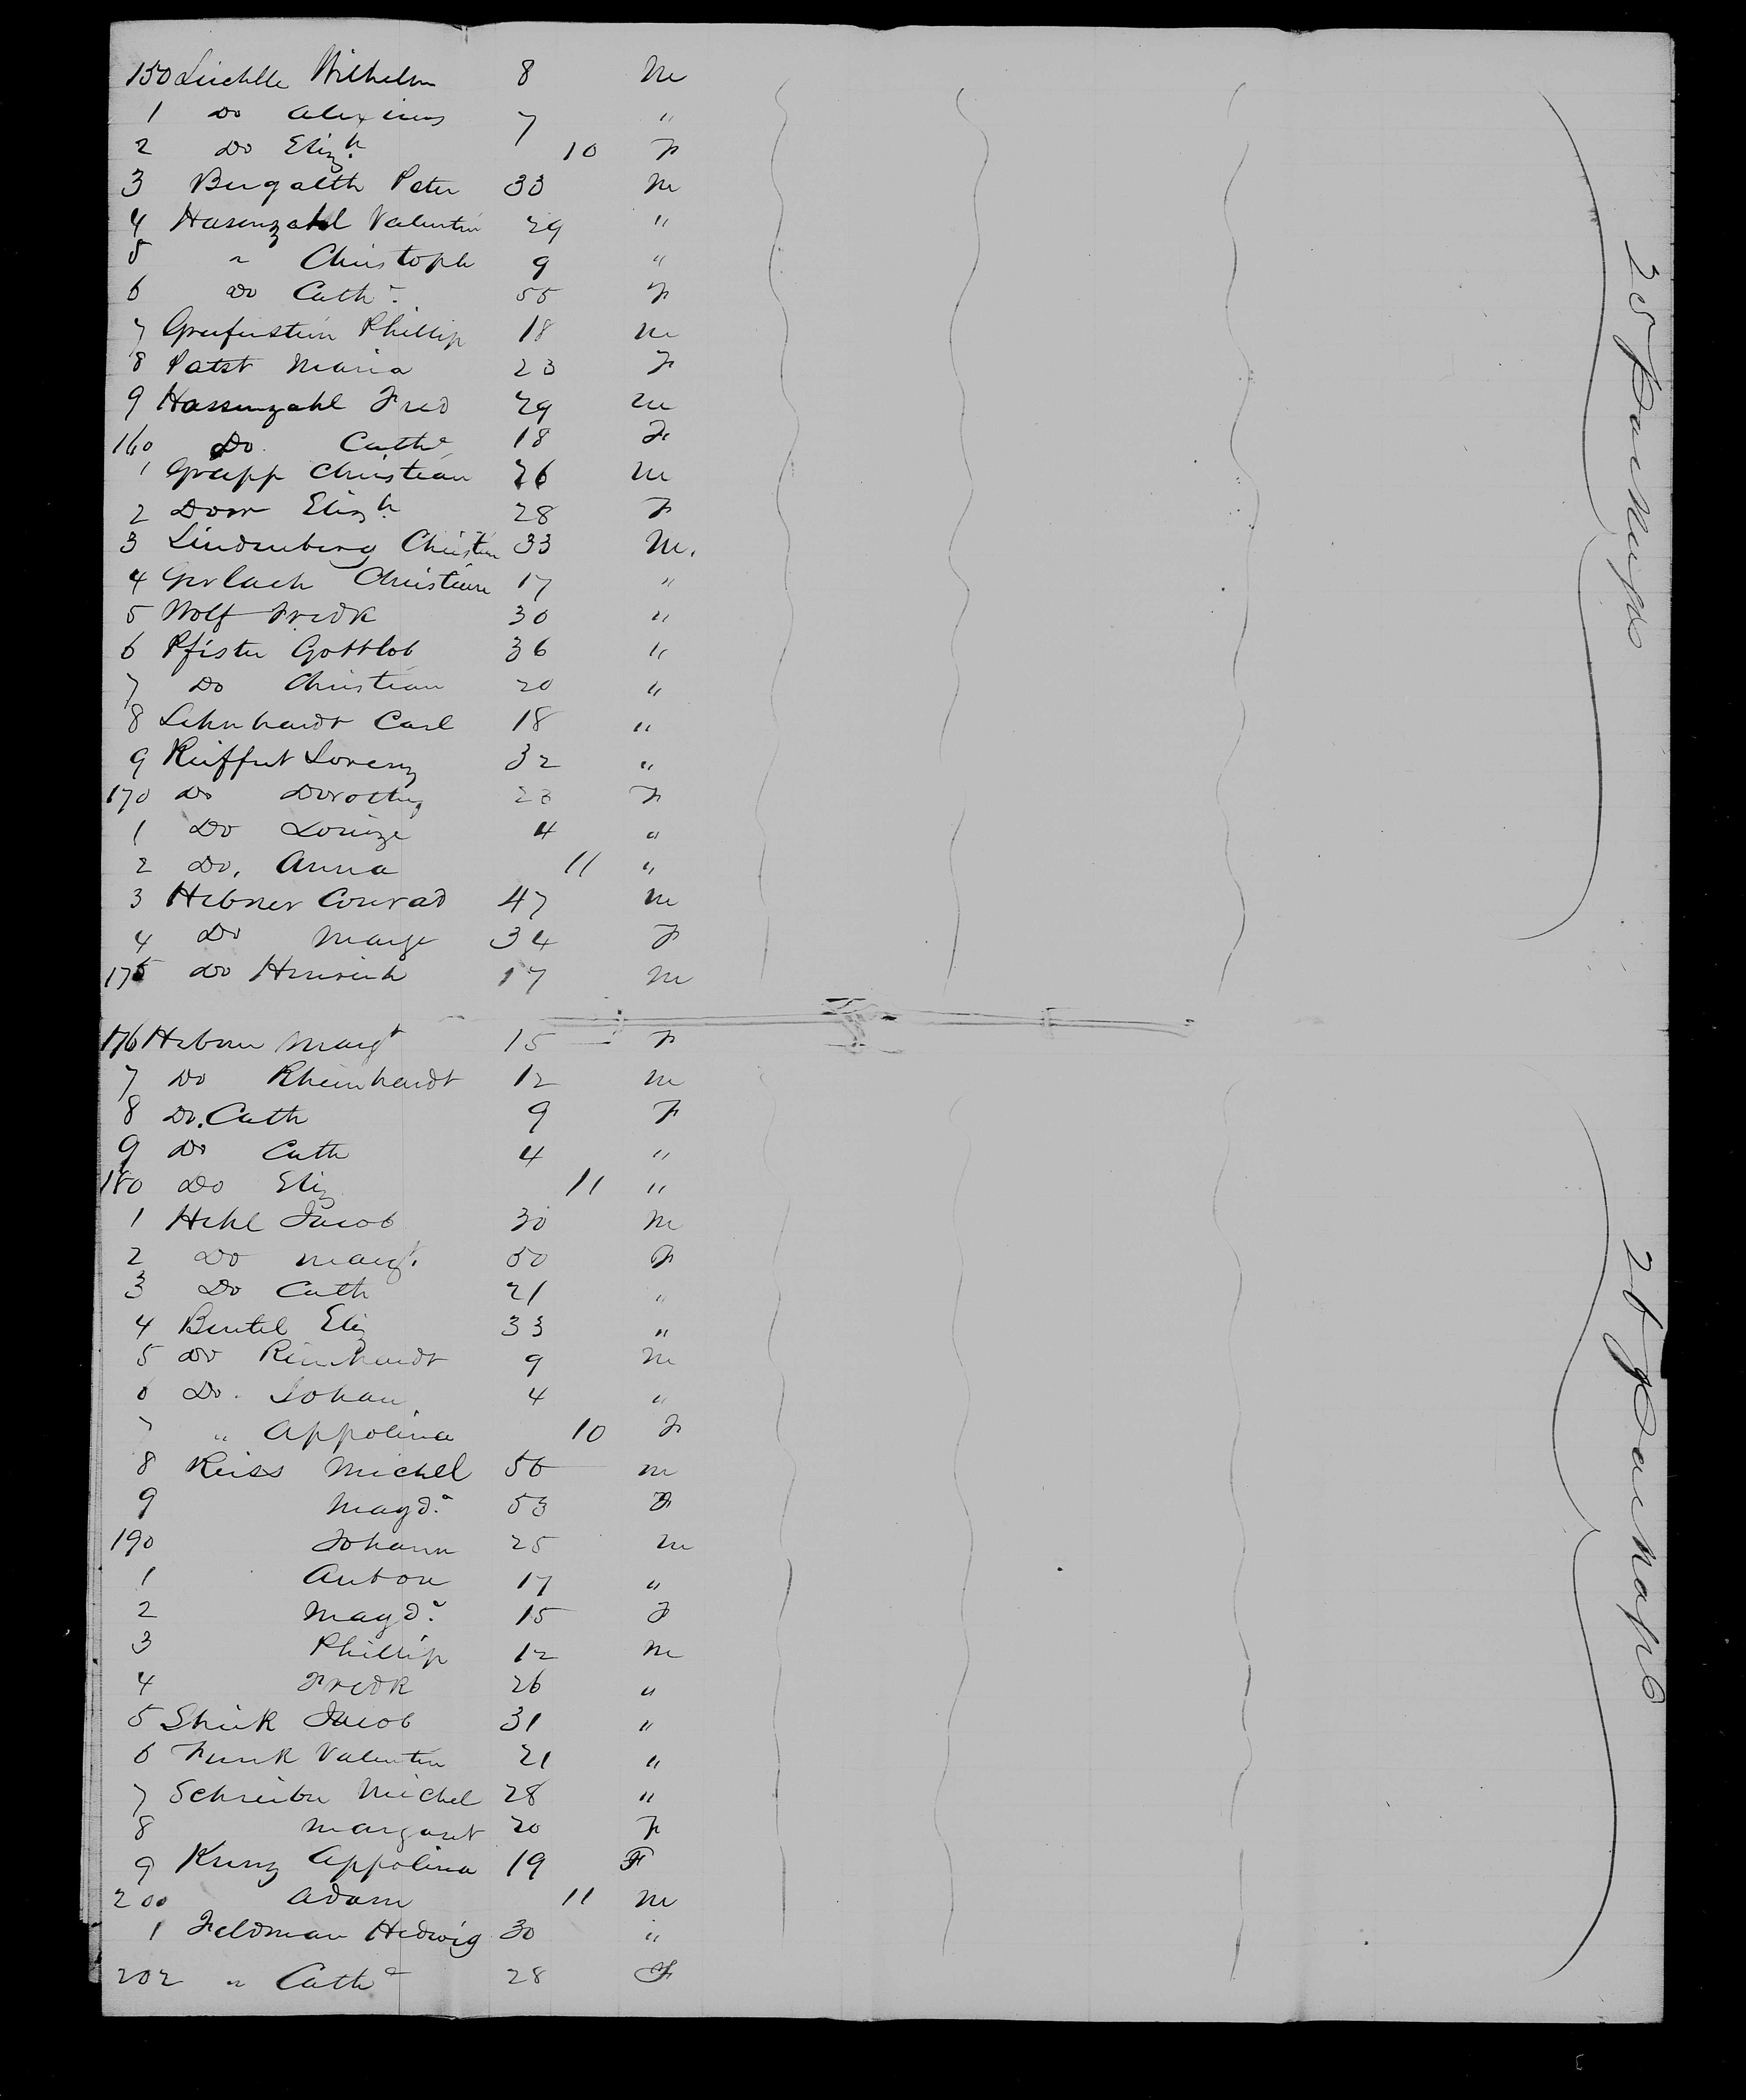 150 Luchlle Wilhelm 8 M
1 Do Alexius 7 "
2 Do Eliz.h 10 F
3 Bugalth Peter 33 M
4 Hasenzahl Valentin 29 "
5 " Christoph 9 "
6 Do Cath.a 55 F
7 Greifenstein Phillip 18 M
8 Patst Maria 23 F
9 Hassenzahl Fred 29 M
160 Do Cath.a 18 F
1 Grapp Christian 26 M
2 Dorr Eliz.h 28 F
3 Lindenberg Christian 33 M.
4 Gerlach Christian 17 "
5 Wolf Fredk 30 "
6 Pfister Gottlob 36 "
7 Do Christian 20 "
8 Lehnhardt Carl 18 "
9 Reiffert Lorenz 32 "
170 Do Dorothy 23 F
1 Do Louize 4 "
2 Do. Anna 11 "
3 Hebner Conrad 47 M
4 Do Marge 34 F
175 Do Heinrich 17 M
25 pr Car Maps
176 Hebner Margt 15 F
7 Do Rheinhardt 12 M
8 Do. Cath 9 F
9 Do Cath 4 "
180 Do Eliz 11 "
1 Hehl Jacob 30 M
2 Do Margt. 50 F
3 Do Cath 21 "
4 Beutel Eliz 33 "
5 Do Reinhardt 9 M
6 Do. Johan 4 "
7 " Appolina 10 F
8 Reiss Michel 56 M
9 Magd.a 53 F
190 Johann 25 M
1 Anton 17 "
2 Magd.a 15 F
3 Phillip 12 M
4 Fredk 26 "
5 Shirk Jacob 31 "
6 Funk Valentin 21 "
7 Schreiber Michel 28 "
8 Margaret 20 F
9 Kunz Appolina 19 F
200 Adam 11 M
1 Feldman Hedwig 30 "
202 " Cath.a 28 F